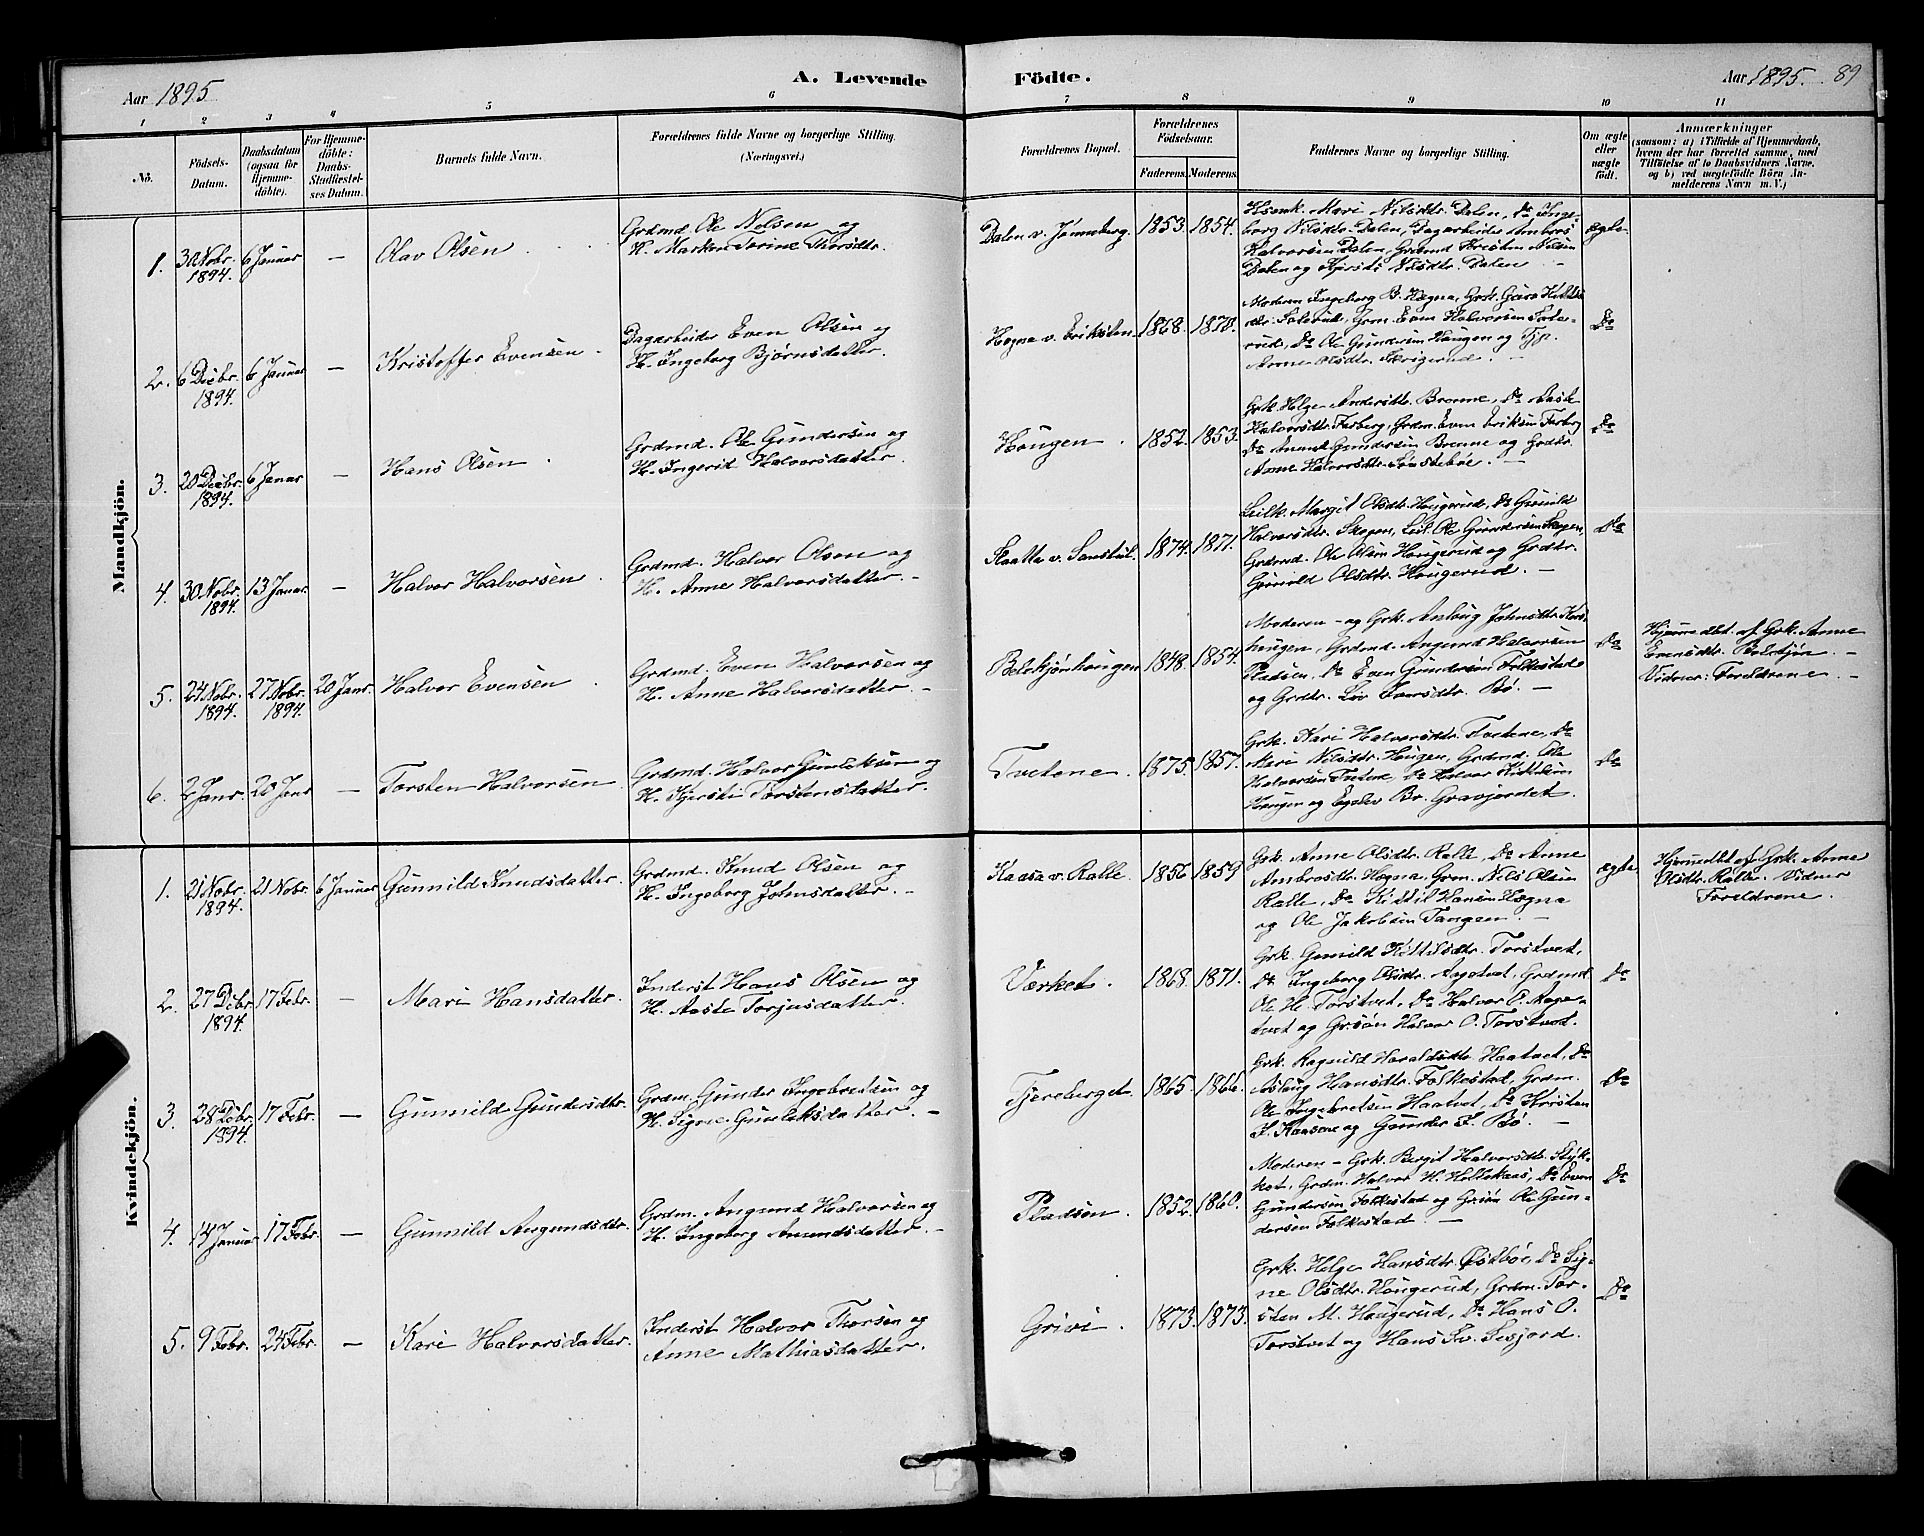 Aar 1895
A. Levende
Födte.
Aar 1895. 89
1 2 3 4 5 6 7 8 9 10 11
No.
Födsels-
Datum.
Daabsdatum
(ogsaa for
Hjemme-
döbte).
For Hjemme-
döbte:
Daabs-
Stadfæstel-
ses Datum.
Barnets fulde Navn.
Forældrenes fulde Navne og borgerlige Stilling.
(Næringsvei.)
Forældrenes Bopæl.
Forældrenes
Födselsaar.
Faderens. Moderens.
Faddernes Navne og borgerlige Stilling.
Om ægte
eller
uægte
födt.
Anmærkninger
(saasom: a) i Tilfælde af Hjemmedaab,
hvem der har forrettet samme, med
Tilföielse af to Daabsvidners Navne,
og b) ved uægtefödte Börn An-
melderens Navn m. V.)
Mandkjön.
1. 30 Nobr. 1894. 6 Januar — Olav Olsen
Grdmd Ole Nelsen og
H. Marken Torine Thorsdtr.
Dalen v. Jønneberg. 1853. 1854.
Hsenk. Mari Nilsdtr. Dalen, Do Inge-
borg Nilsdtr. Dalen, Dagarbeider Ambros
Halvorsen Dalen, Grdmd Kristen Nilsen
Dalen og Kjersti Nilsdtr. Dalen —
ægte.
2. 6 Decbr. 1894. 6 Januar — Kristoffer Evensen
Dagarbeider Even Olsen og
H. Ingeborg Bjørnsdatter.
Hegna v. Eriksten. 1868. 1870.
Moderen Ingeborg B. Hegna,
Grm. Even Halvorsen
Do Ole Gundersen Haugen og
Anne Olsdtr.
Do
3. 20 Decbr. 1894. 6 Januar — Hans Olsen
Grdmd. Ole Gundersen og
H. Ingerid Halvorsdatter.
Haugen. 1852. 1853.
Grk. Helge Andersdtr. Brenne, Do Aase
Halvorsdtr. Farberg, Grdm. Even Eriksen Farberg
Do Amund Gundersen Brenne og Grdtr.
Anne Halvorsdtr. —
Do
4. 30 Nobr. 1894. 13 Januar. — Halvor Halvorsen
Grdmd. Halvor Olsen og
H. Anne Halvorsdatter. —
Slaatta v. 1874. 1871.
Leilk. Margit Olsdtr. Haugerud, Do Gunild
Halvorsdtr. Skogen, Leil. Ole Gundersen Skogen,
Grdmd. Ole Olsen Haugerud og Grdtr.
Gunild Olsdtr. Haugerud. —
Do
5. 24 Nobr. 1894. 27 Nobr. 1894. 20 Janr. Halvor Evensen
Grdmd. Even Halvorsen og
H. Anne Halvorsdatter. —
1848. 1854.
Moderen — og Grk. Anlaug Johnsdtr.
haugen, Grdmd. Angund Halvorsen
Pladsen, Do Even Gundersen Folkestad
og Grdtr. Liv Evensdtr. Bø. —
Do
Hjemmedbt. af Grk. Anne
Evensdtr. —
Vidner: Foreldrene. —
6. 2 Janr. 20 Janr — Torsten Halvorsen
Grdmd. Halvor Gunleksen og
H. Kjersti Torstensdatter.
Tvetene. 1875. 1857.
Grk. Kari Halvorsdtr. Tvetene, Do
Mari Nilsdtr. Haugen, Grdmd. Ole
Halvorsen Tvetene, Do Halvor Kittilsen
Haugen og Br. Gravjordet.
Do
Kvindekjön.
1. 21 Nobr. 1894. 21 Nobr. 6 Januar Gunnild Knudsdatter.
Grdmd. Knud Olsen og
H. Ingeborg Johnsdatter. —
Kaasa v. Ralle. 1856 1859
Grk. Anne Olsdtr. Ralle, Do Anne
Ambrosdtr. Hegna, Grm. Nils Olsen
Ralle, Do Kittil Hansen Hegna
og Ole Jakobsen Tangen. —
ægte
Hjemmedbt af Grk. Anne
Olsdtr. Ralle. Vidner
Foreldrene.
2. 27 Debr. 1894. 17 Febr. — Mari Hansdatter.
Inderst Hans Olsen og
H. Aaste Torjusdatter.
Værket. 1868. 1871.
Grk. Gunild Kittilsdtr. Torstvet,
Do Ingeborg Olsdtr. Aagetvet, Grdmd
Ole H. Torstvet, Do Halvor O. Aage-
tvet og Grsøn Halvor O. Torstvet.
Do
3. 28 Debr. 1894. 17 Febr. — Gunnild Gundersdtr.
Grdm. Gunder Ingebretsen og
H. Signe Gunleksdatter. —
Tjereberget. 1865. 1866.
Grk. Ragnild Haraldsdtr. Haatvet, Do
Aslaug Hansdtr. Folkestad, Grdm.
Ole Ingebretsen Haatvet, Do Kristen
F. Kaasene og Gunder F. Bø. —
Do
4. 14 Januar 17 Febr. — Gunnild Angundsdtr.
Grdm. Angund Halvorsen og
H. Ingeborg Amundsdatter. —
Pladsen. 1852. 1860.
Moderen — Grk. Bergit Halvorsdtr. Styk-
ket, Grdm. Halvor H. Holtekaas, Do Even
Gundersen Folkestad og Grsøn Ole Gun-
dersen Folkestad. —
Do
5. 9 Febr. 24 Febr. — Kari Halvorsdatter.
Inderst Halvor Thorsen og
Anne Mathiasdatter.
Grivi. 1873. 1873.
Grk. Helge Hansdtr. Do Sig-
ne Olsdtr. Haugerud, Grdm. Tor-
sten M. Haugerud, Do Hans O.
Torstvet og Hans Sv. Sisjord.
Do